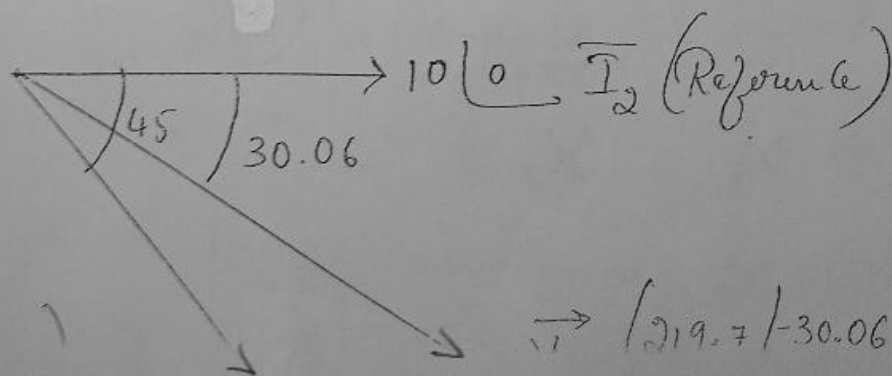 10∠0 I̅₂ (Reference)
45
30.06
219.7 /-30.06